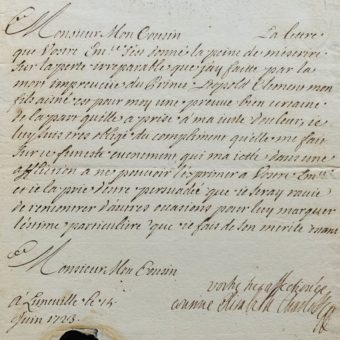 Monsieur Mon Cousin La lettre
que Vostre Em.ce s'est donné la peine de m'escrire
sur la perte irreparable que j'ay faitte par la
mort impreveüe du Prince Leopold Clement mon
fils aisné est pour moy une preuve bien certaine
de la part qu'elle a prise a ma juste douleur, je
luy suis tres obligé du compliment qu'elle me fait
sur ce funeste evenement qui m'a jetté dans une
affliction a ne pouvoir l'exprimer a Vostre Em.ce
et je la prie d'estre persuadé que je seray ravie
de rencontrer d'autres occasions pour luy marquer
l'estime particuliere que je fais de son merite estant
Monsieur Mon Cousin
a Luneville le 15
Juin 1723.
vostre tres affectionée
cousine elisabeth charlotte